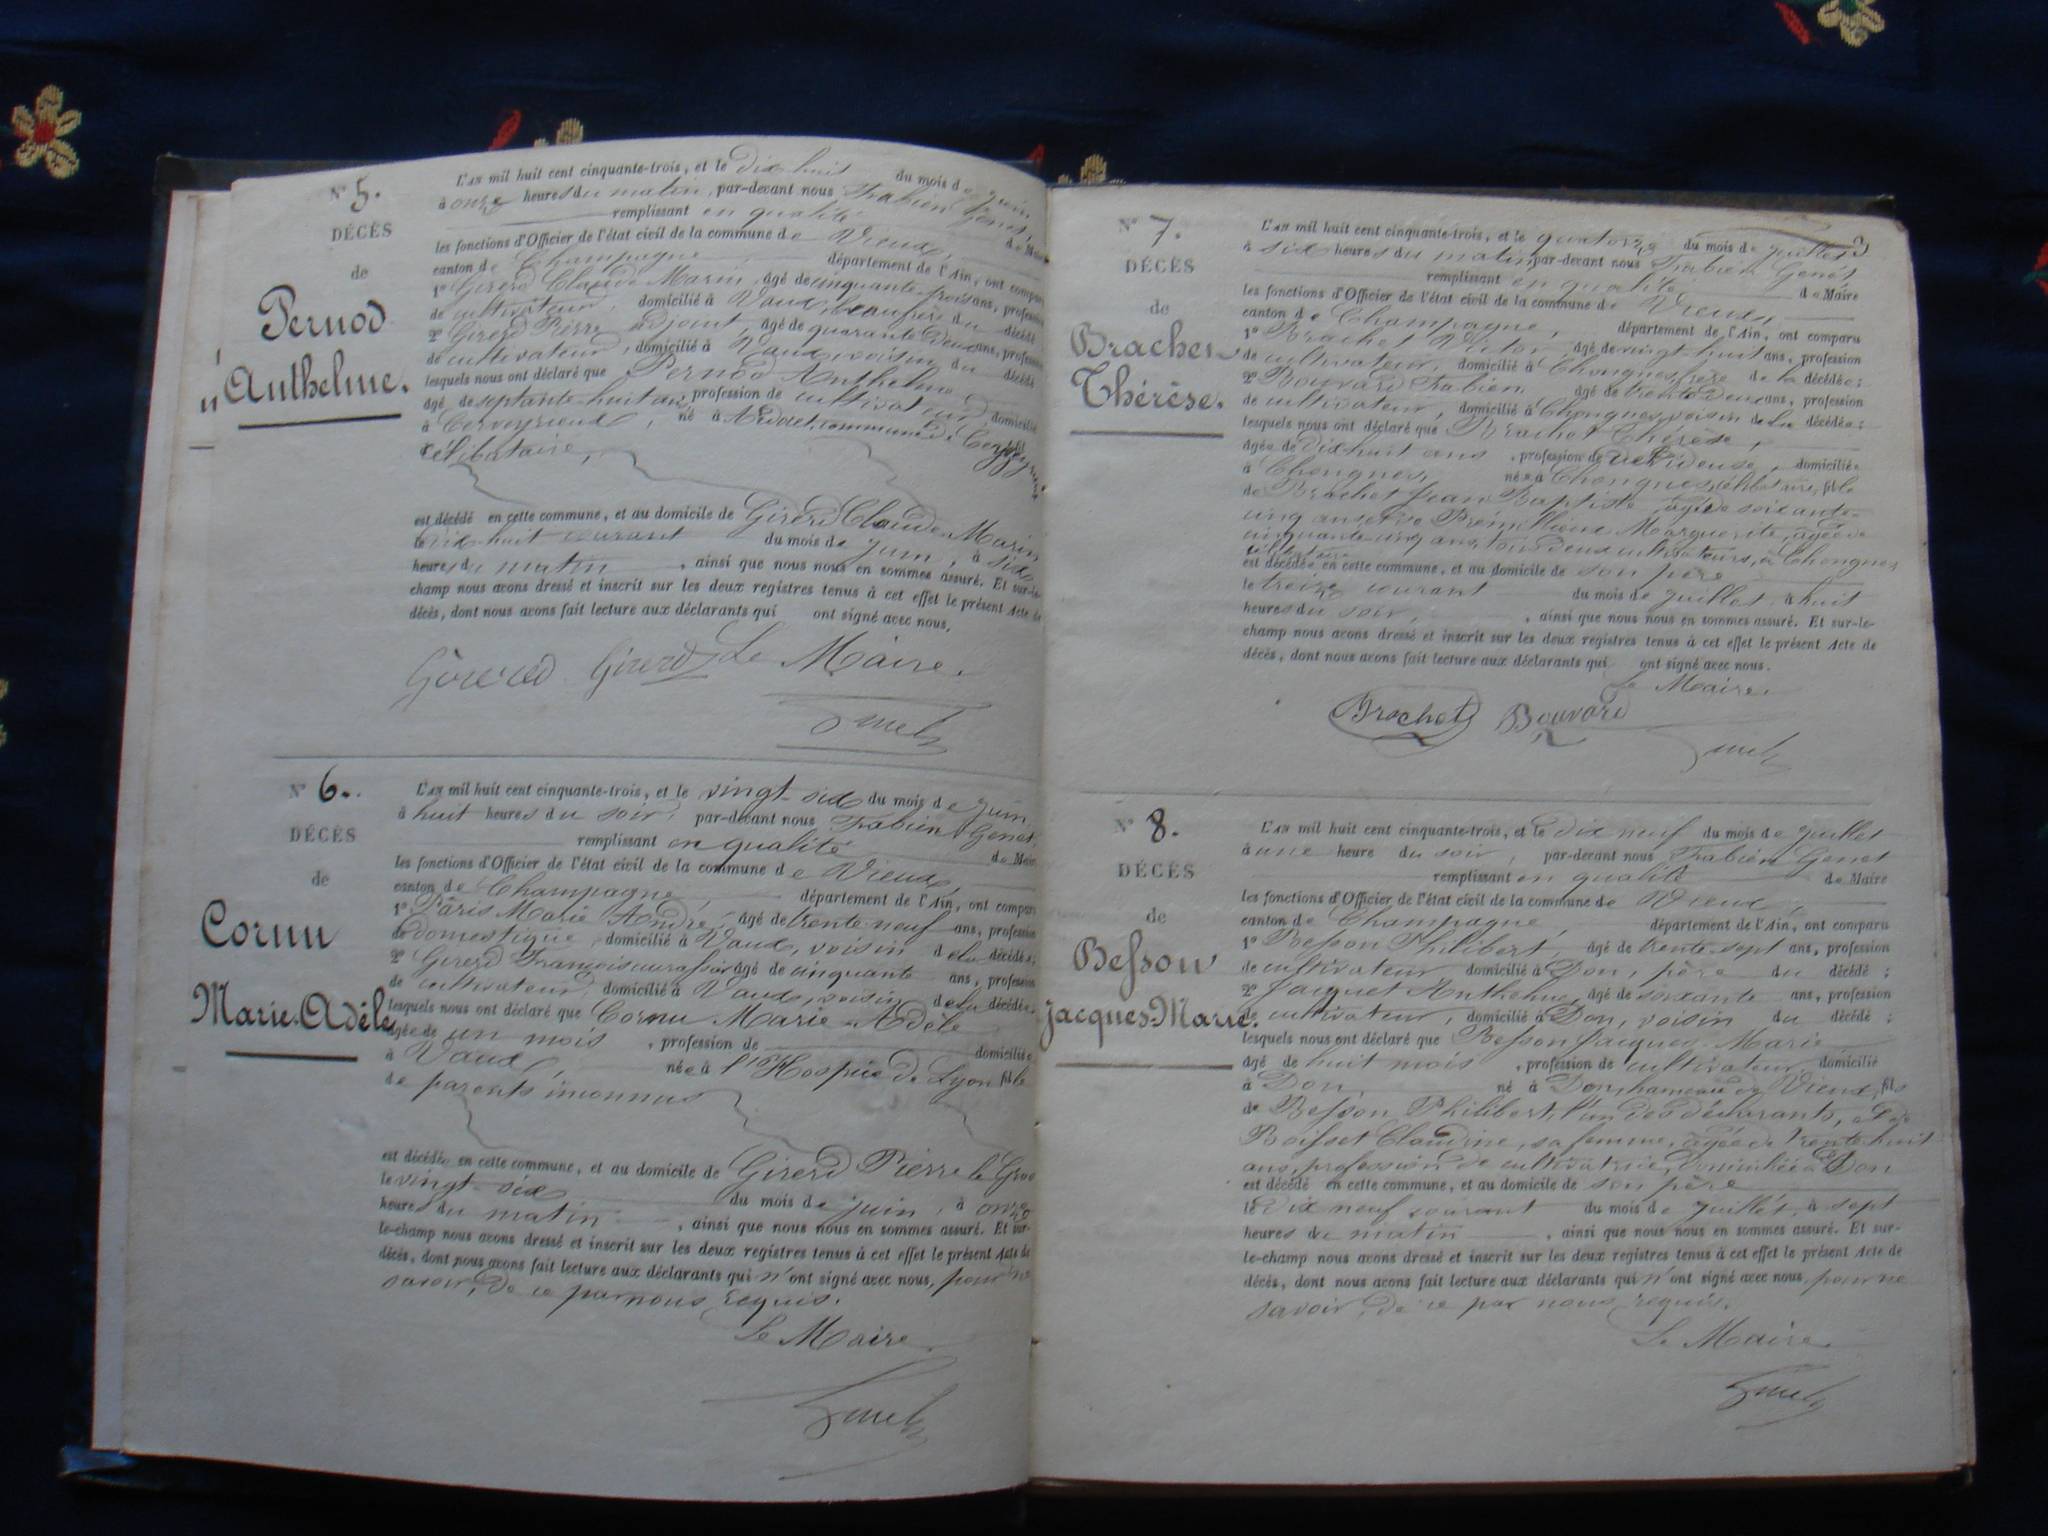 N° 5.
DÉCÈS
de
Pernod
Anthelme.
L'AN mil huit cent cinquante-trois, et le dix huit du mois de juin
à onze heures du matin, par-devant nous Fabien Genet,
remplissant en qualité de Maire
les fonctions d'Officier de l'état civil de la commune de Vieux,
canton de Champagne département de l'Ain, ont comparu
1° Girerd Claude Marin, âgé de cinquante trois ans, profession
de cultivateur, domicilié à Vaux, beau père du décédé
2° Girerd Pierre adjoint, âgé de quarante deux ans, profession
de cultivateur, domicilié à Vaux, voisin du décédé
lesquels nous ont déclaré que Pernod Anthelme,
âgé de septante-huit ans, profession de cultivateur, domicilié
à Cerveyrieux, né à commune de
célibataire,
est décédé en cette commune, et au domicile de Girerd Claude Marin
le dix-huit courant du mois de juin, à six
heures du matin, ainsi que nous nous en sommes assuré. Et sur-le-
champ nous avons dressé et inscrit sur les deux registres tenus à cet effet le présent Acte de
décès, dont nous avons fait lecture aux déclarants qui ont signé avec nous.
Girerd Girerd Le Maire.
N° 6.
DÉCÈS
de
Cornu
Marie-Adèle
L'AN mil huit cent cinquante-trois, et le vingt-six du mois de juin
à huit heures du soir, par-devant nous Fabien Genet,
remplissant en qualité de Maire
les fonctions d'Officier de l'état civil de la commune de Vieux,
canton de Champagne, département de l'Ain, ont comparu
1° Pâris Marie André, âgé de trente-neuf ans, profession
de domestique, domicilié à Vaux, voisin de la décédée;
2° Girerd François âgé de cinquante ans, profession
de cultivateur, domicilié à Vaux, voisin de la décédée;
lesquels nous ont déclaré que Cornu Marie-Adèle
âgée de un mois, profession de domiciliée
à Vaux, née à l'Hospice de Lyon fille
de parents inconnus
est décédée en cette commune, et au domicile de Girerd Pierre le Gros
le vingt-six du mois de juin, à onze
heures du matin, ainsi que nous nous en sommes assuré. Et sur-
le-champ nous avons dressé et inscrit sur les deux registres tenus à cet effet le présent Acte de
décès, dont nous avons fait lecture aux déclarants qui n'ont signé avec nous, pour ne
savoir, de ce par nous requis.
Le Maire.
3
N° 7.
DÉCÈS
de
Brachet
Thérèse.
L'AN mil huit cent cinquante-trois, et le quatorze du mois de juillet
à six heures du matin, par-devant nous Fabien Genet
remplissant en qualité de Maire
les fonctions d'Officier de l'état civil de la commune de Vieux,
canton de Champagne, département de l'Ain, ont comparu
1° Brachet Victor, âgé de vingt-huit ans, profession
de cultivateur, domicilié à Chongnes, frère de la décédée;
2° Bouvard Fabien âgé de trente deux ans, profession
de cultivateur, domicilié à Chongnes, voisin de la décédée;
lesquels nous ont déclaré que Brachet Thérèse,
âgée de dix huit ans, profession de dévideuse, domiciliée
à Chongnes, née à Chongnes, célibataire, fille
de Brachet Jean Baptiste, âgé de soixante-
cinq ans et de Marguerite, âgée de
cinquante cinq ans, tous deux cultivateurs, à Chongnes
célibataire
est décédée en cette commune, et au domicile de son père
le treize courant du mois de juillet, à huit
heures du soir, ainsi que nous nous en sommes assuré. Et sur-le-
champ nous avons dressé et inscrit sur les deux registres tenus à cet effet le présent Acte de
décès, dont nous avons fait lecture aux déclarants qui ont signé avec nous.
Le Maire.
Brachet Bouvard
N° 8.
DÉCÈS
de
Besson
Jacques-Marie.
L'AN mil huit cent cinquante-trois, et le dix neuf du mois de juillet
à une heure du soir, par-devant nous Fabien Genet
remplissant en qualité de Maire
les fonctions d'Officier de l'état civil de la commune de Vieux,
canton de Champagne, département de l'Ain, ont comparu
1° Besson Philibert, âgé de trente-sept ans, profession
de cultivateur domicilié à Don, père du décédé;
2° Jacquet Anthelme, âgé de soixante ans, profession
de cultivateur, domicilié à Don, voisin du décédé;
lesquels nous ont déclaré que Besson Jacques-Marie
âgé de huit mois, profession de cultivateur, domicilié
à Don né à Don, hameau de Vieux, fils
de Besson Philibert, l'un des déclarants, et de
Boisset Claudine, sa femme, âgée de trente-huit
ans, profession de cultivatrice, domiciliée à Don
est décédé en cette commune, et au domicile de son père
le dix neuf courant du mois de juillet, à sept
heures du matin, ainsi que nous nous en sommes assuré. Et sur-
le-champ nous avons dressé et inscrit sur les deux registres tenus à cet effet le présent Acte de
décès, dont nous avons fait lecture aux déclarants qui n'ont signé avec nous, pour ne
savoir, de ce par nous requis.
Le Maire.